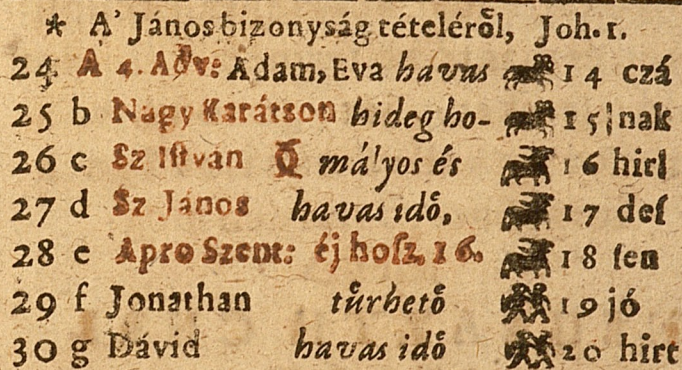 * A' János bizonyság tételéről, Joh. 1.
24 A 4. Adv: Adam, Eva havas 14 czá
25 b Nagy Karátson hideg ho- 15 nak
26 c Sz Istvan mályos és 16 hirl
27 d Sz János havas idő, 17 des
28 e Apro Szent: éj hosz. 16. 18 sen
29 f Jonathan tűrhető 19 jó
30 g Dávid havas idő 20 hirt